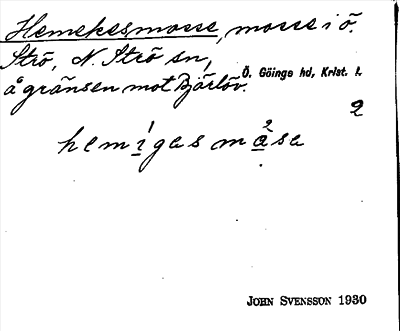 Hemekesmosse, mosse i ö.
Strö, N. Strö sn,
Ö. Göinge hd, Krist. l.
å gränsen mot Bjärlöv.
2
hemígas màse
JOHN SVENSSON 1930